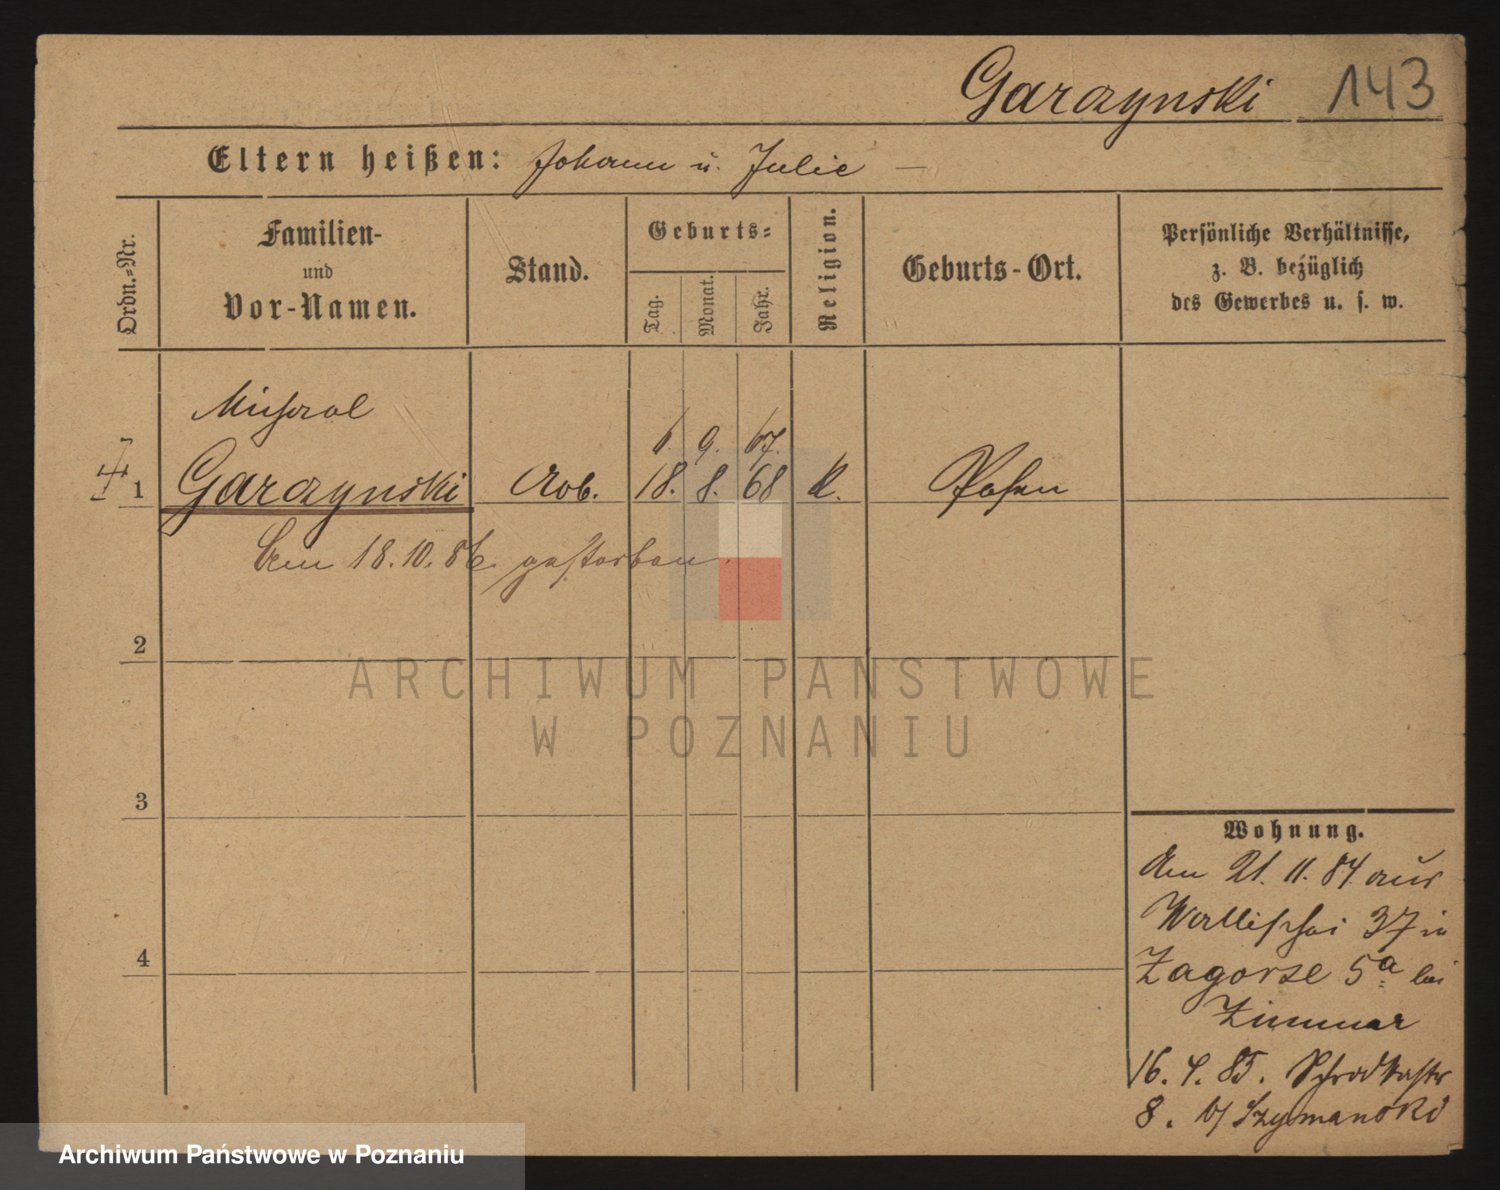 Garczynski 143
Eltern heißen: Johann u. Julie —
Ordn.=Nr.
Familien-
und
Vor-Namen.
Stand.
Geburts=
Tag.
Monat.
Jahr.
Religion.
Geburts-Ort.
Persönliche Verhältnisse,
z. B. bezüglich
des Gewerbes u. s. w.
Michael
6. 9. 67.
1 Garczynski Arb. 18. 8. 68 K. Posen
Am 18.10.86. gestorben.
2
3
4
Wohnung.
Am 21. 11. 84 aus
Wallischei 37 in
Zagorze 5a bei
Zimmer
16. 4. 85. Schrodkastr
8. b/ Szymanski
ARCHIWUM PAŃSTWOWE
W POZNANIU
Archiwum Państwowe w Poznaniu